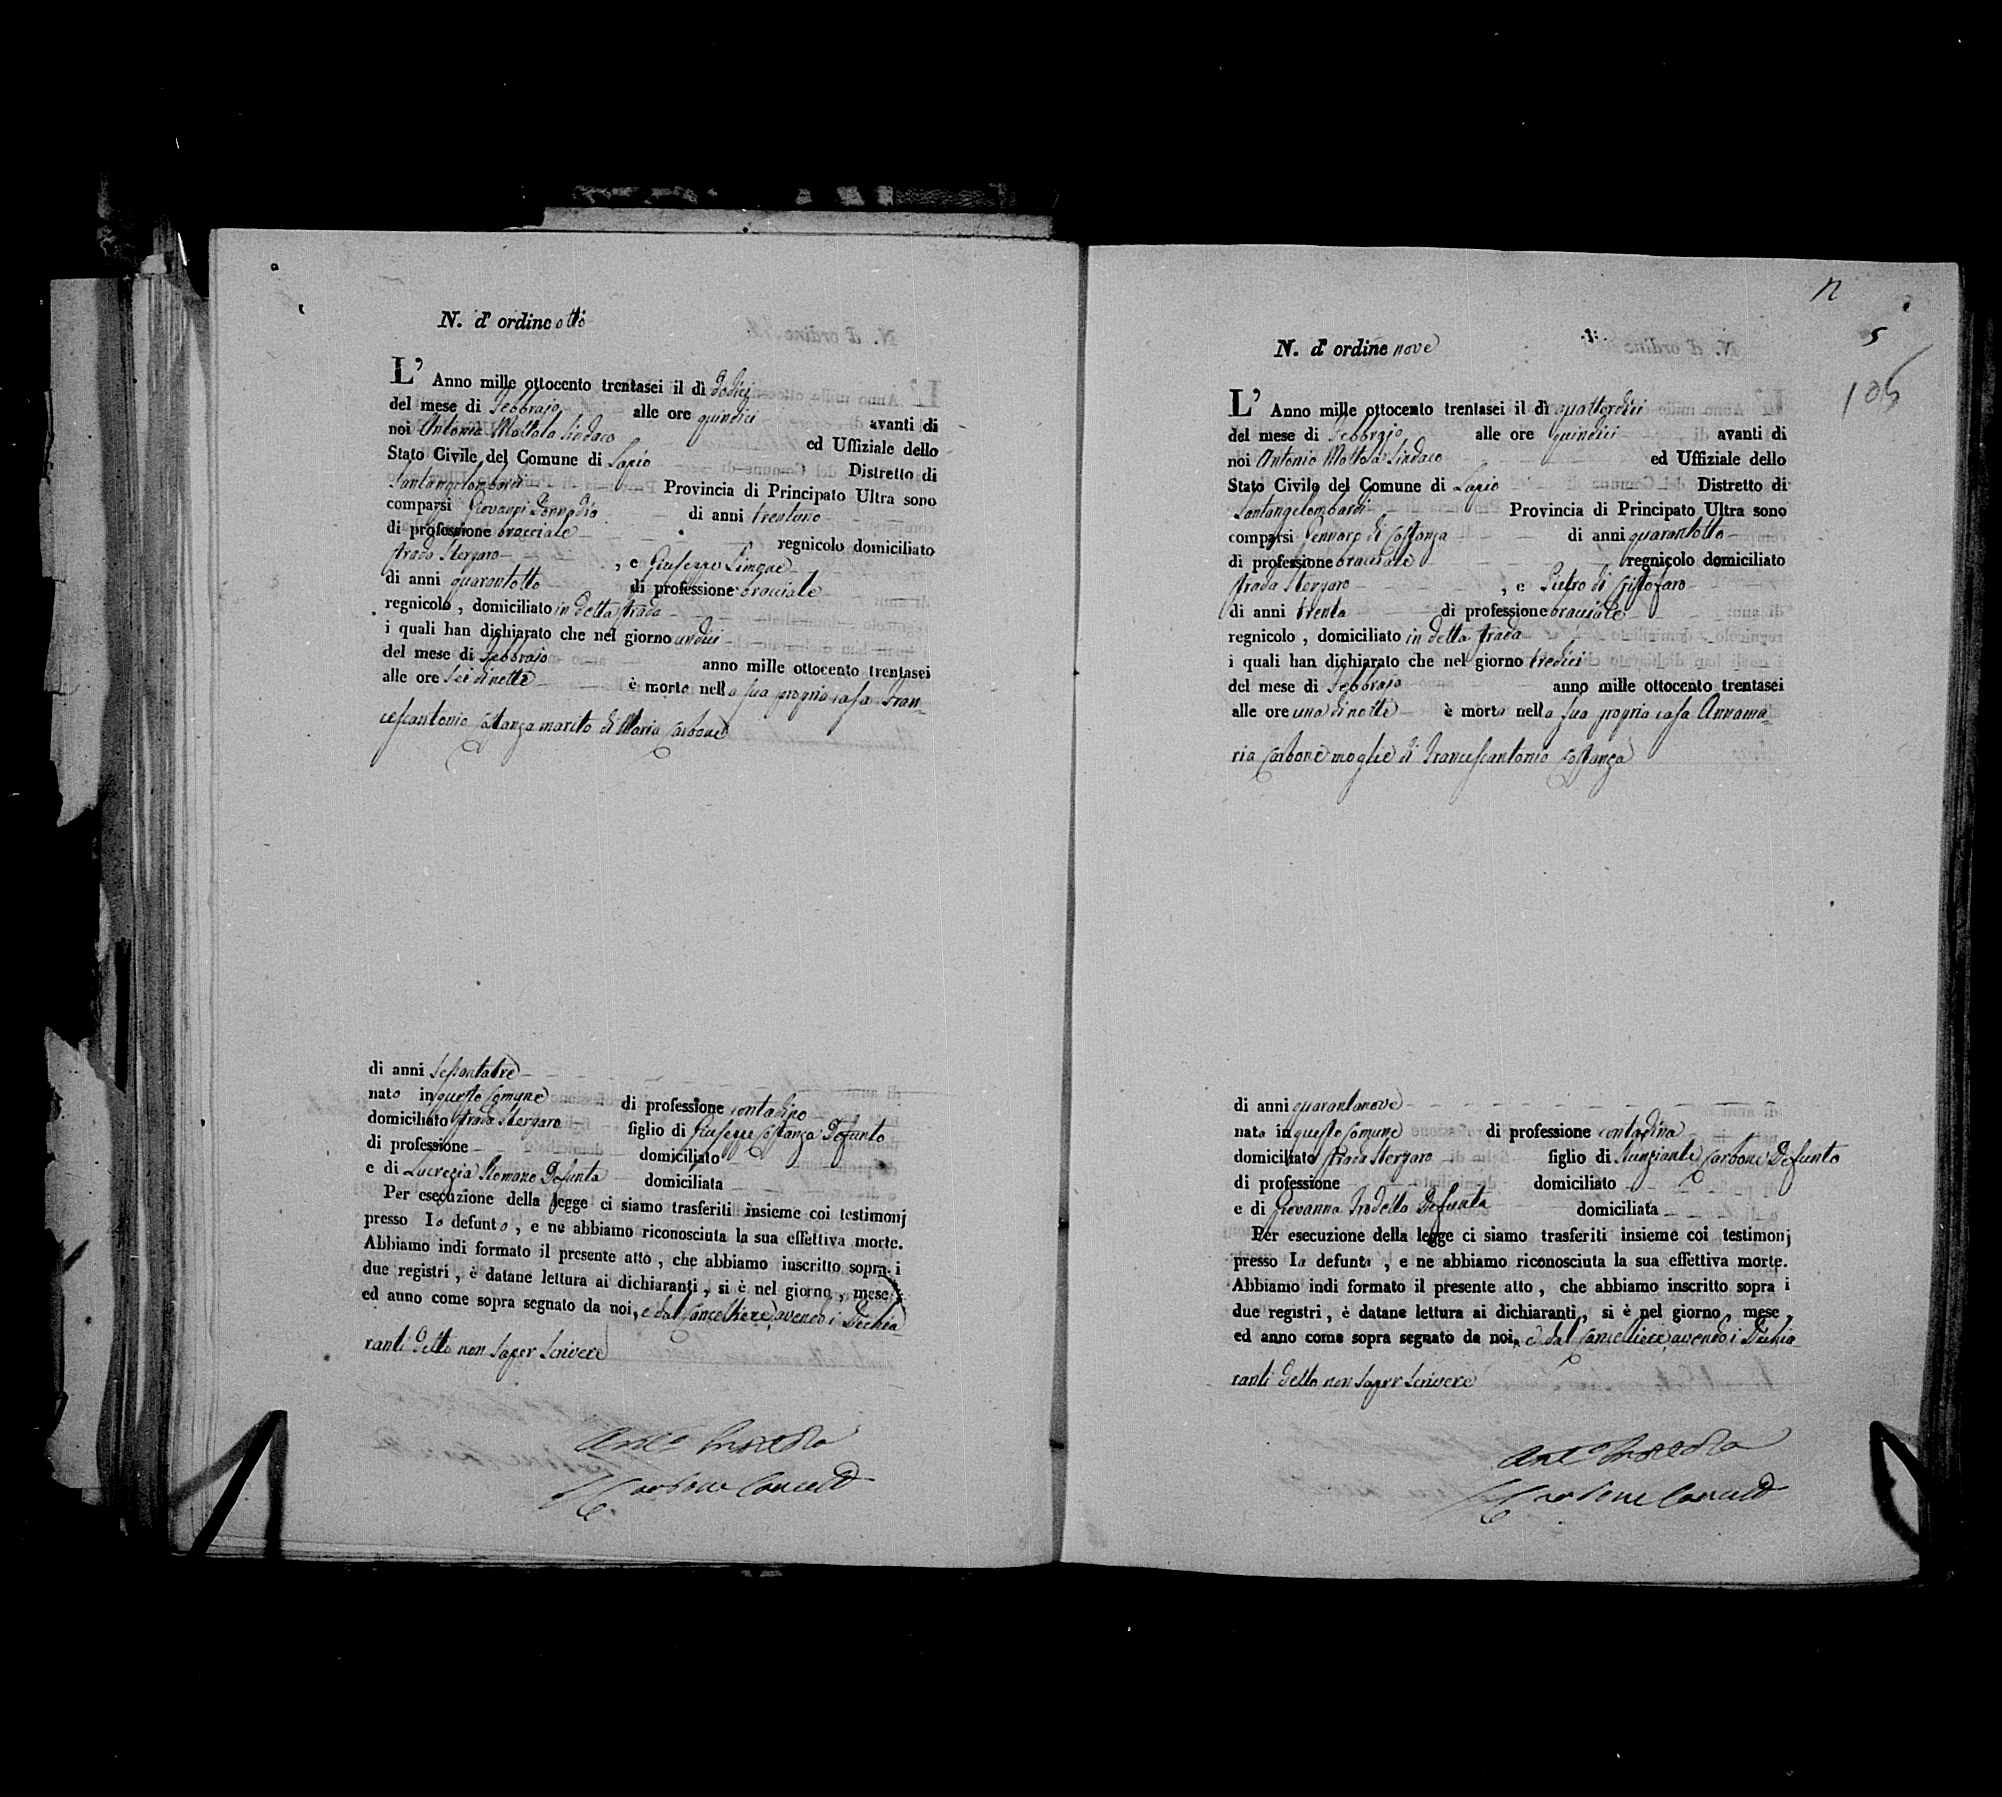 N. d' ordine otto
L' Anno mille ottocento trentasei il dì dodici
del mese di Febbrajo alle ore quindici avanti di
noi Antonio Mottola Sindaco ed Uffiziale dello
Stato Civile del Comune di Lapio Distretto di
Santangelombardi Provincia di Principato Ultra sono
comparsi Giovanni di anni trentuno
di professione bracciale regnicolo domiciliato
strada Stergaro , e Giuseppe
di anni quarantotto di professione bracciale
regnicolo , domiciliato in detta strada
i quali han dichiarato che nel giorno undici
del mese di Febbrajo anno mille ottocento trentasei
alle ore sei di notte è morto nella sua propria casa Fran-
cescantonio Costanza marito di Maria Carbone
di anni sessantatre
nato in questo Comune di professione contadino
domiciliato strada Stergaro figlio di Giuseppe Costanza Defunto
di professione domiciliato
e di Lucrezia Romano Defunta domiciliata
Per esecuzione della legge ci siamo trasferiti insieme coi testimonj
presso lo defunto , e ne abbiamo riconosciuta la sua effettiva morte.
Abbiamo indi formato il presente atto , che abbiamo inscritto sopra i
due registri , è datane lettura ai dichiaranti , si è nel giorno , mese ,
ed anno come sopra segnato da noi, e dal Cancelliere, avendo i Dichia-
ranti detto non saper scrivere
Ant.o Mottola
Carbone Canc.
12
5
106
N. d' ordine nove
L' Anno mille ottocento trentasei il dì quattordici
del mese di Febbrajo alle ore quindici avanti di
noi Antonio Mottola Sindaco ed Uffiziale dello
Stato Civile del Comune di Lapio Distretto di
Santangelombardi Provincia di Principato Ultra sono
comparsi Gennaro di Costanza di anni quarantotto
di professione bracciale regnicolo domiciliato
strada Stergaro , e Pietro di Cristofaro
di anni trenta di professione bracciale
regnicolo , domiciliato in detta strada
i quali han dichiarato che nel giorno tredici
del mese di Febbrajo anno mille ottocento trentasei
alle ore una di notte è morta nella sua propria casa Annama-
ria Carbone moglie di Francescantonio Costanza
di anni quarantanove
nata in questo Comune di professione contadina
domiciliato strada Stergaro figlio di Nunziante Carbone Defunto
di professione domiciliato
e di Giovanna Defunta domiciliata
Per esecuzione della legge ci siamo trasferiti insieme coi testimonj
presso la defunta , e ne abbiamo riconosciuta la sua effettiva morte.
Abbiamo indi formato il presente atto , che abbiamo inscritto sopra i
due registri , è datane lettura ai dichiaranti , si è nel giorno , mese ,
ed anno come sopra segnato da noi, e dal Cancelliere, avendo i Dichia-
ranti detto non saper scrivere
Ant.o Mottola
Carbone Canc.